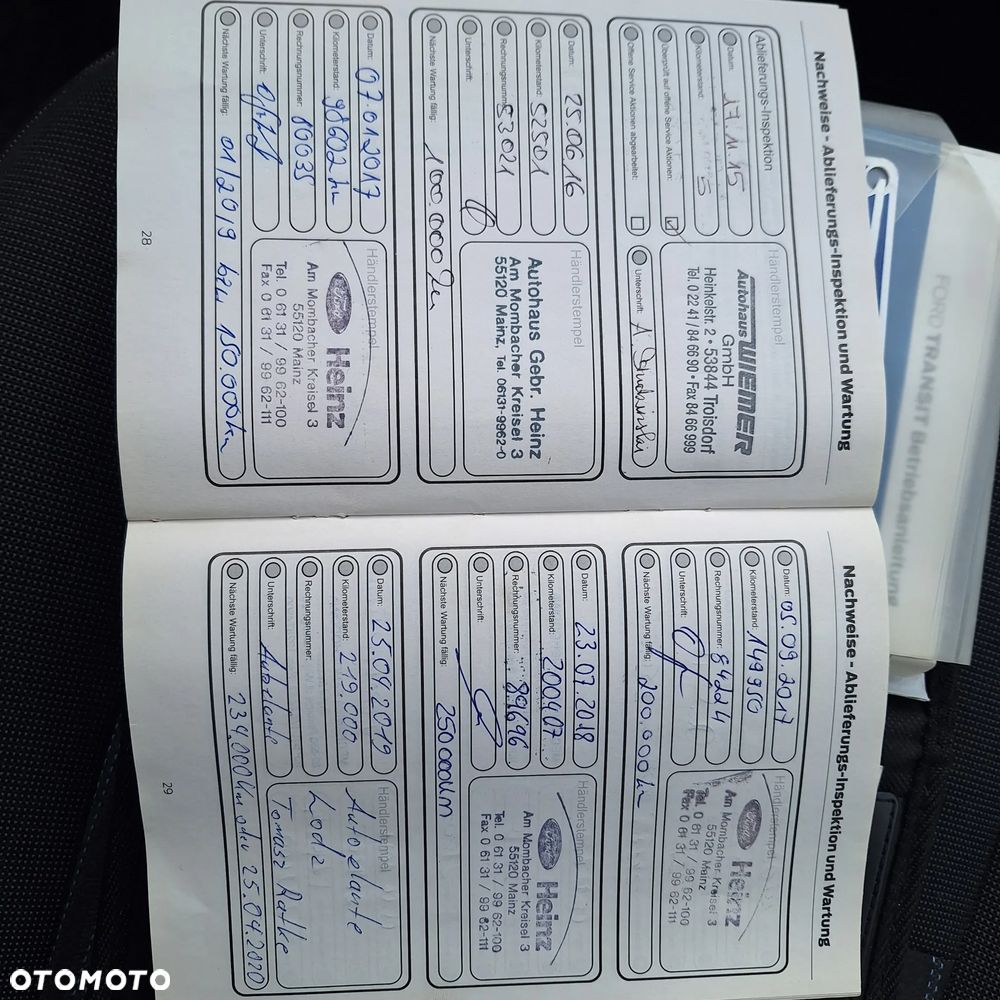 Nachweise - Ablieferungs-Inspektion und Wartung
Ablieferungs-Inspektion
Datum: 17.11.15
Kilometerstand: 5
Überprüft auf offene Service Aktionen:
Offene Service Aktionen abgearbeitet:
Händlerstempel
Autohaus WIEMER
GmbH
Heinkelstr. 2 • 53844 Troisdorf
Tel. 0 22 41 / 84 66 90 • Fax 84 66 999
Unterschrift:
Datum: 25.06.16
Kilometerstand: 52501
Rechnungsnummer: 53021
Unterschrift:
Nächste Wartung fällig: 100.000km
Händlerstempel
Autohaus Gebr. Heinz
Am Mombacher Kreisel 3
55120 Mainz, Tel. 06131-9962-0
Datum: 07.01.2017
Kilometerstand: 98602km
Rechnungsnummer: 80035
Unterschrift:
Nächste Wartung fällig: 01/2019 bzw 150.000km
Händlerstempel
Ford Heinz
Am Mombacher Kreisel 3
55120 Mainz
Tel. 0 61 31 / 99 62-100
Fax 0 61 31 / 99 62-111
28
Nachweise - Ablieferungs-Inspektion und Wartung
Datum: 05.09.2017
Kilometerstand: 149950
Rechnungsnummer: 84224
Unterschrift:
Nächste Wartung fällig: 200.000km
Händlerstempel
Heinz
Am Mombacher Kreisel 3
55120 Mainz
Tel. 0 61 31 / 99 62-100
Fax 0 61 31 / 99 62-111
Datum: 23.07.2018
Kilometerstand: 200407
Rechnungsnummer: 89696
Unterschrift:
Nächste Wartung fällig: 250000km
Händlerstempel
Ford Heinz
Am Mombacher Kreisel 3
55120 Mainz
Tel. 0 61 31 / 99 62-100
Fax 0 61 31 / 99 62-111
Datum: 25.04.2019
Kilometerstand: 219.000
Rechnungsnummer:
Unterschrift: Autoelante
Nächste Wartung fällig: 234.000km oder 25.04.2020
Händlerstempel
Autoelante
Lodz
Tomasz Ratke
29
FORD TRANSIT Betriebsanleitung
OTOMOTO